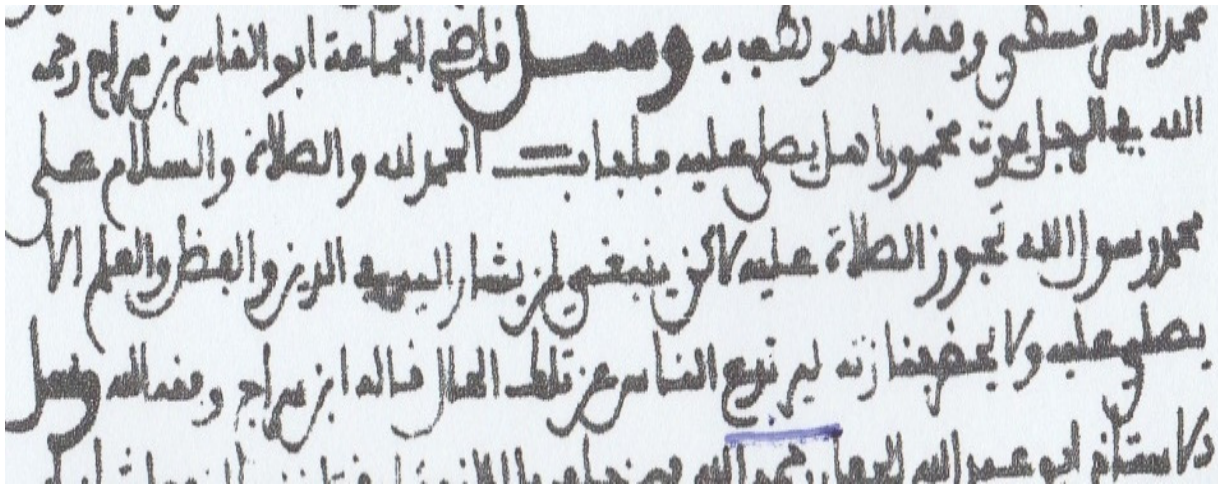 محمد السرقسطي وفقه الله ولطف به وسئل قاضي الجماعة ابو القاسم بن سراج رحمه
الله في الرجل يموت مخمورا هل يصلى عليه فاجاب الحمد لله والصلاة والسلام على
محمد رسول الله تجوز الصلاة عليه لاكن ينبغي لمن يشار اليه في الدين والفضل والعلم الا
يصلي عليه ولا يحضر جنازته ليرتدع الناس عن تلك الحال قاله ابن سراج وفقه الله وسئل
الاستاذ ابو عبد الله الحفار رحمه الله